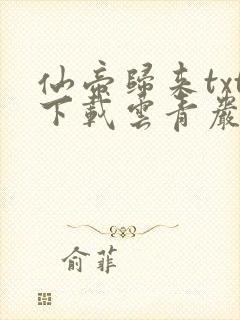 仙帝歸来txt
下載雲青嚴
俞菲